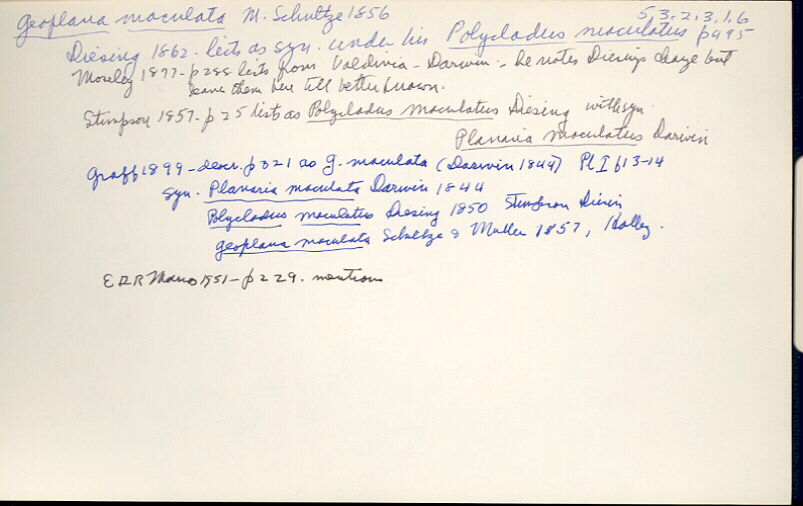 Geoplana maculata M. Schultze 1856
5.3.2.3.1.6
Diesing 1862. lists as syn. under his Polycladus maculatus p495
Moseley 1877 - p288 lists from Valdivia - Darwin - he notes Diesing change but
leave them here till better known.
Stimpson 1857 - p25 lists as Polycladus maculatus Diesing with syn.
Planaria maculatus Darwin
Graff 1899 - descr. p321 as G. maculata (Darwin 1844) Pl I f13-14
syn. Planaria maculata Darwin 1844
Polycladus maculatus Diesing 1850 Stimpson Diesin
Geoplana maculata Schultze & Muller 1857,
E D R Marcus 1951 - p229. mentions